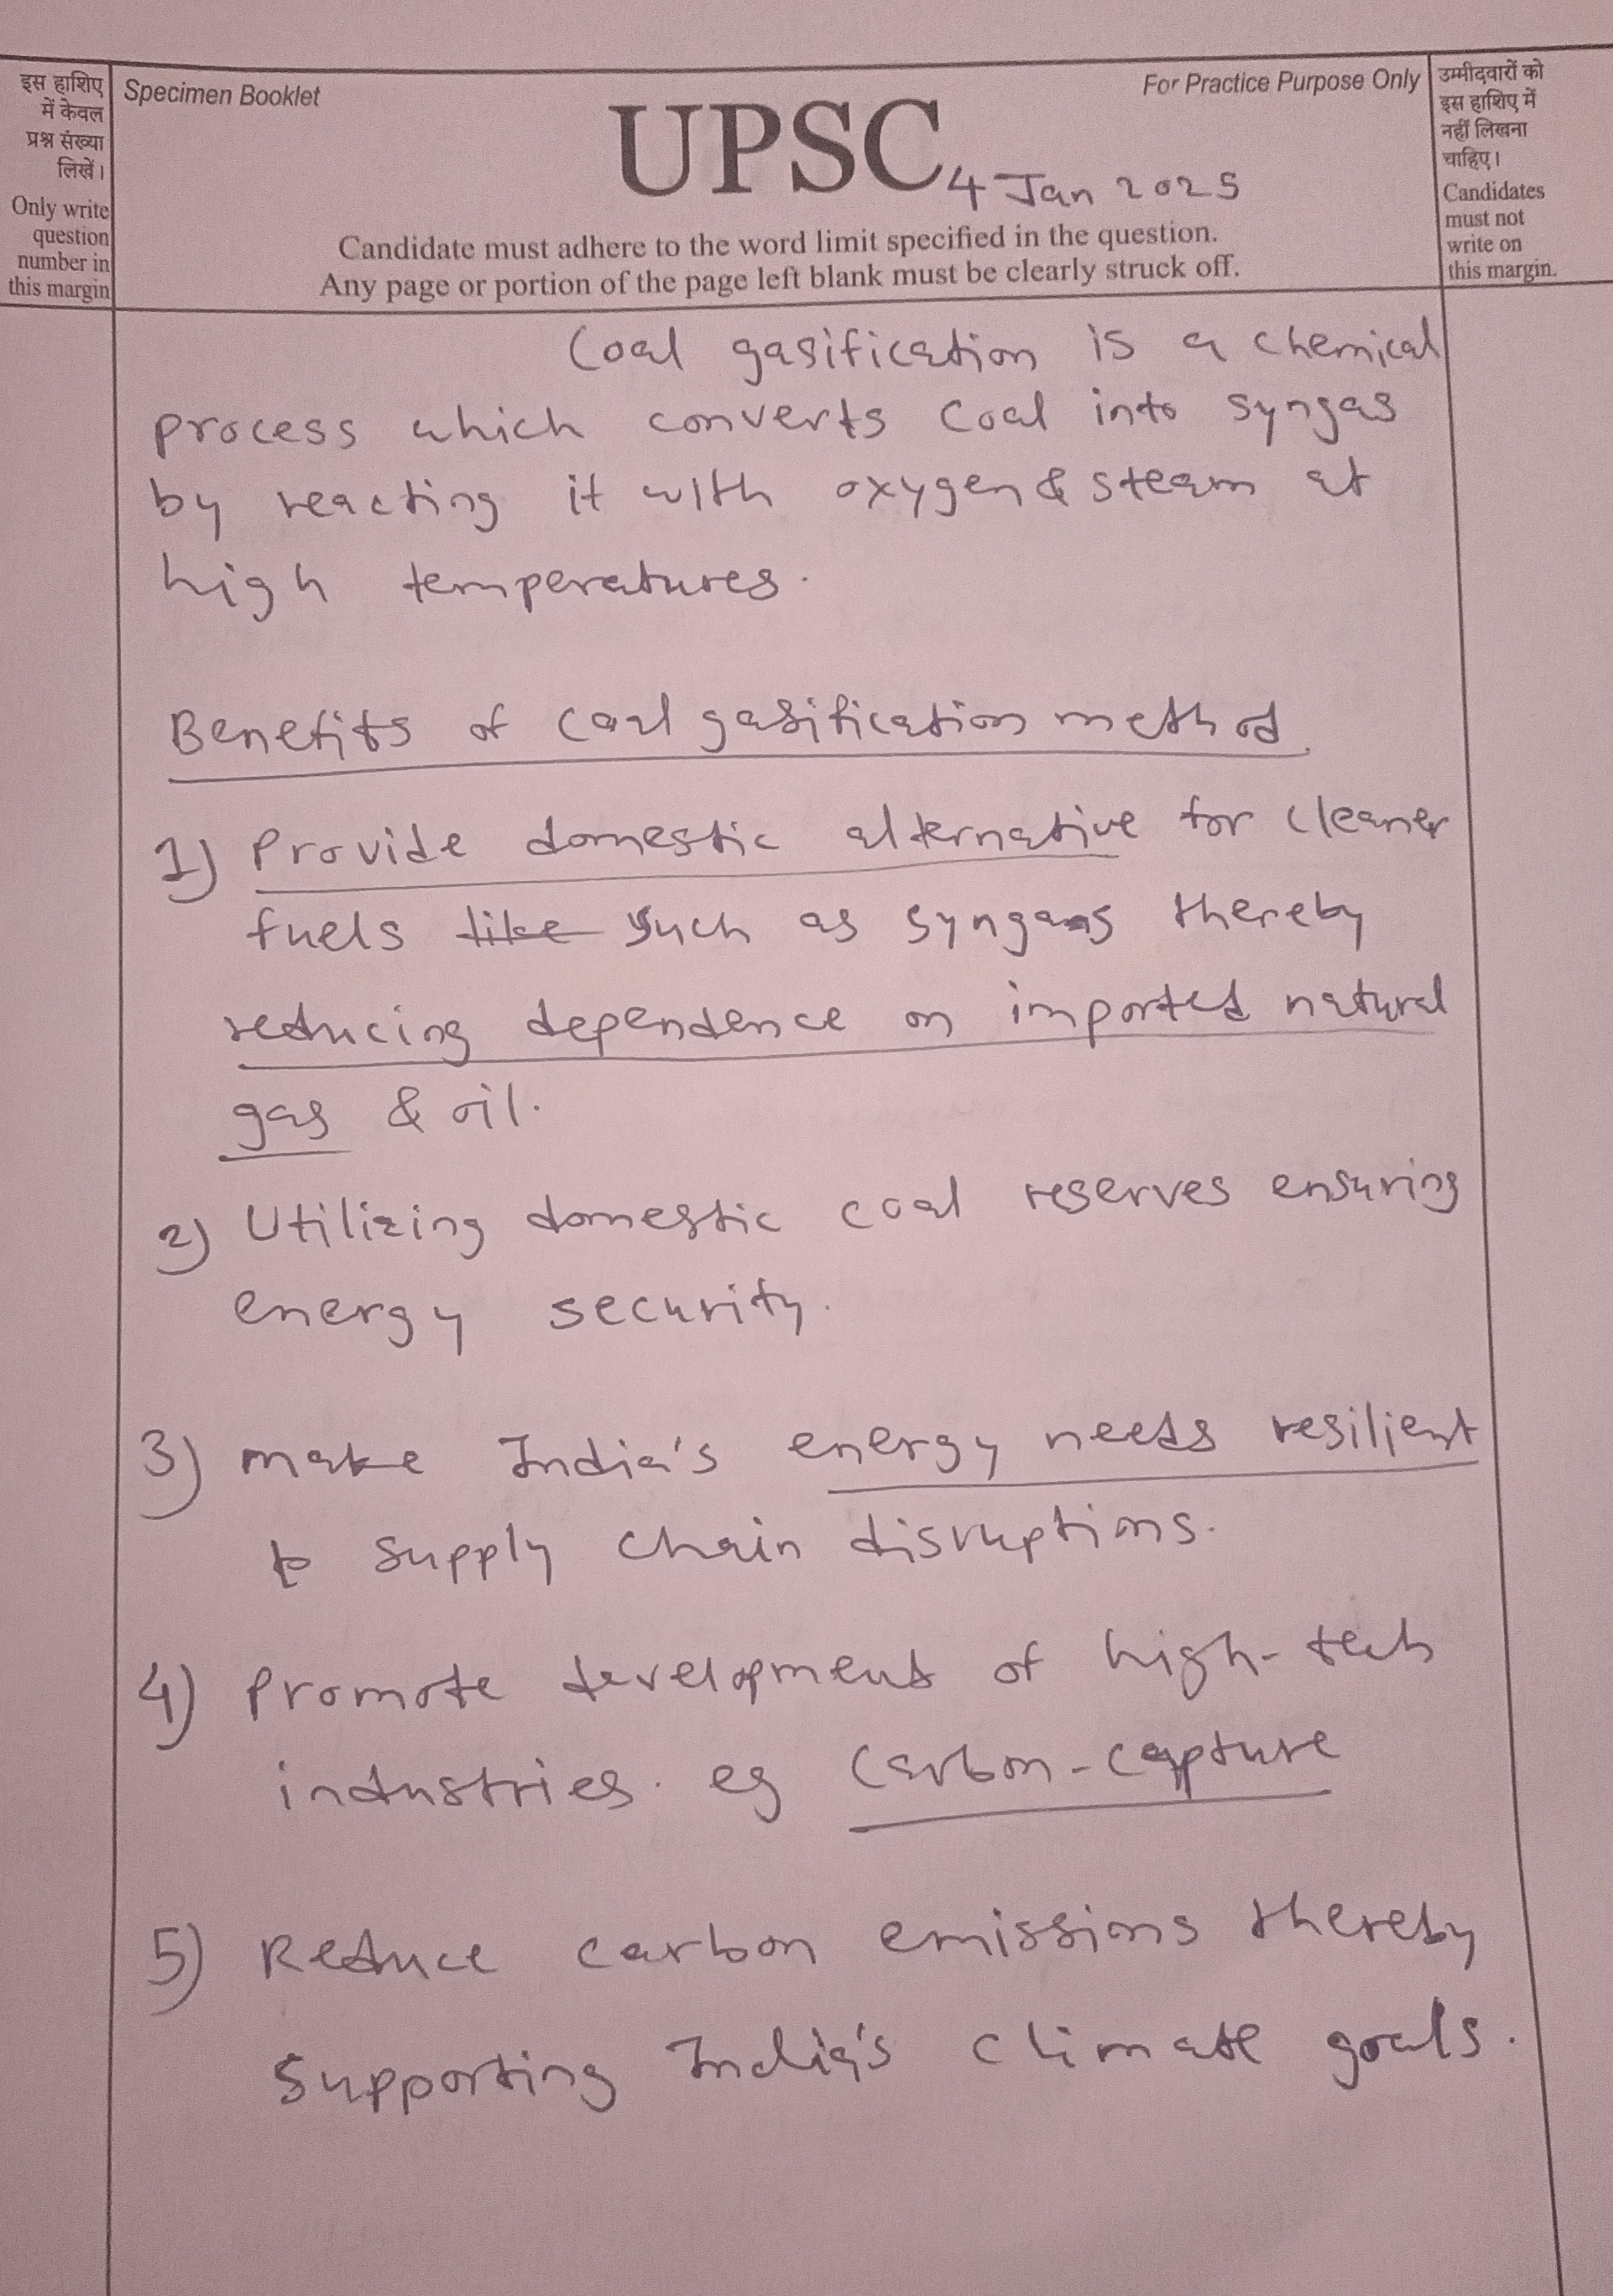 इस हाशिए
में केवल
प्रश्न संख्या
लिखें।
Only write
question
number in
this margin
Specimen Booklet
For Practice Purpose Only
UPSC
4 Jan 2025
Candidate must adhere to the word limit specified in the question.
Any page or portion of the page left blank must be clearly struck off.
उम्मीदवारों को
इस हाशिए में
नहीं लिखना
चाहिए।
Candidates
must not
write on
this margin.
Coal gasification is a chemical
process which converts coal into syngas
by reacting it with oxygen & steam at
high temperatures.
Benefits of coal gasification method
1) Provide domestic alternative for cleaner
fuels like such as syngas thereby
reducing dependence on imported natural
gas & oil.
2) Utilizing domestic coal reserves ensuring
energy security.
3) make India's energy needs resilient
to supply chain disruptions.
4) Promote development of high-tech
industries. eg Carbon-capture
5) Reduce carbon emissions thereby
supporting India's climate goals.